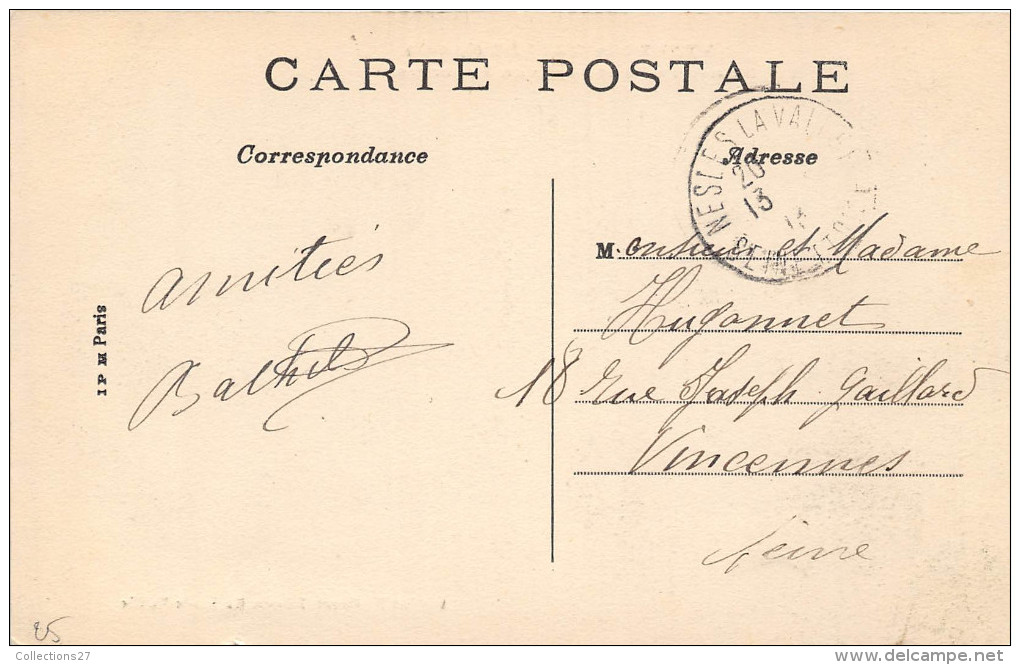 CARTE POSTALE
Correspondance
Adresse
NESLES LA VALLÉE
20
13
SEINE ET OISE
Amitiés
Monsieur et Madame
Hugonnet
18 Rue Joseph Gaillard
Vincennes
Seine
I P M Paris
25
Collections27
www.delcampe.net